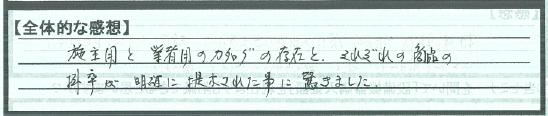 【全体的な感想】
施主用と業者用のカタログの存在と、それぞれの商品の
掛率が明確に提示された事に驚きました。